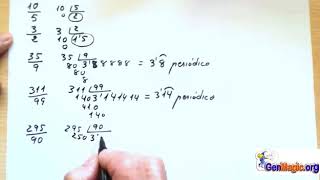 10/5 10 ⌊5
0 2
3/2 3 ⌊2
10 1'5
0
35/9 35 ⌊9
80 3'8 8 8 8 8 = 3'8̑ periódico
80
8
311/99 311 ⌊99
140 3'1 4 1 4 1 4 = 3'1͡4 periódico
410
140
295/90 295 ⌊90
250 3'
GenMagic.org